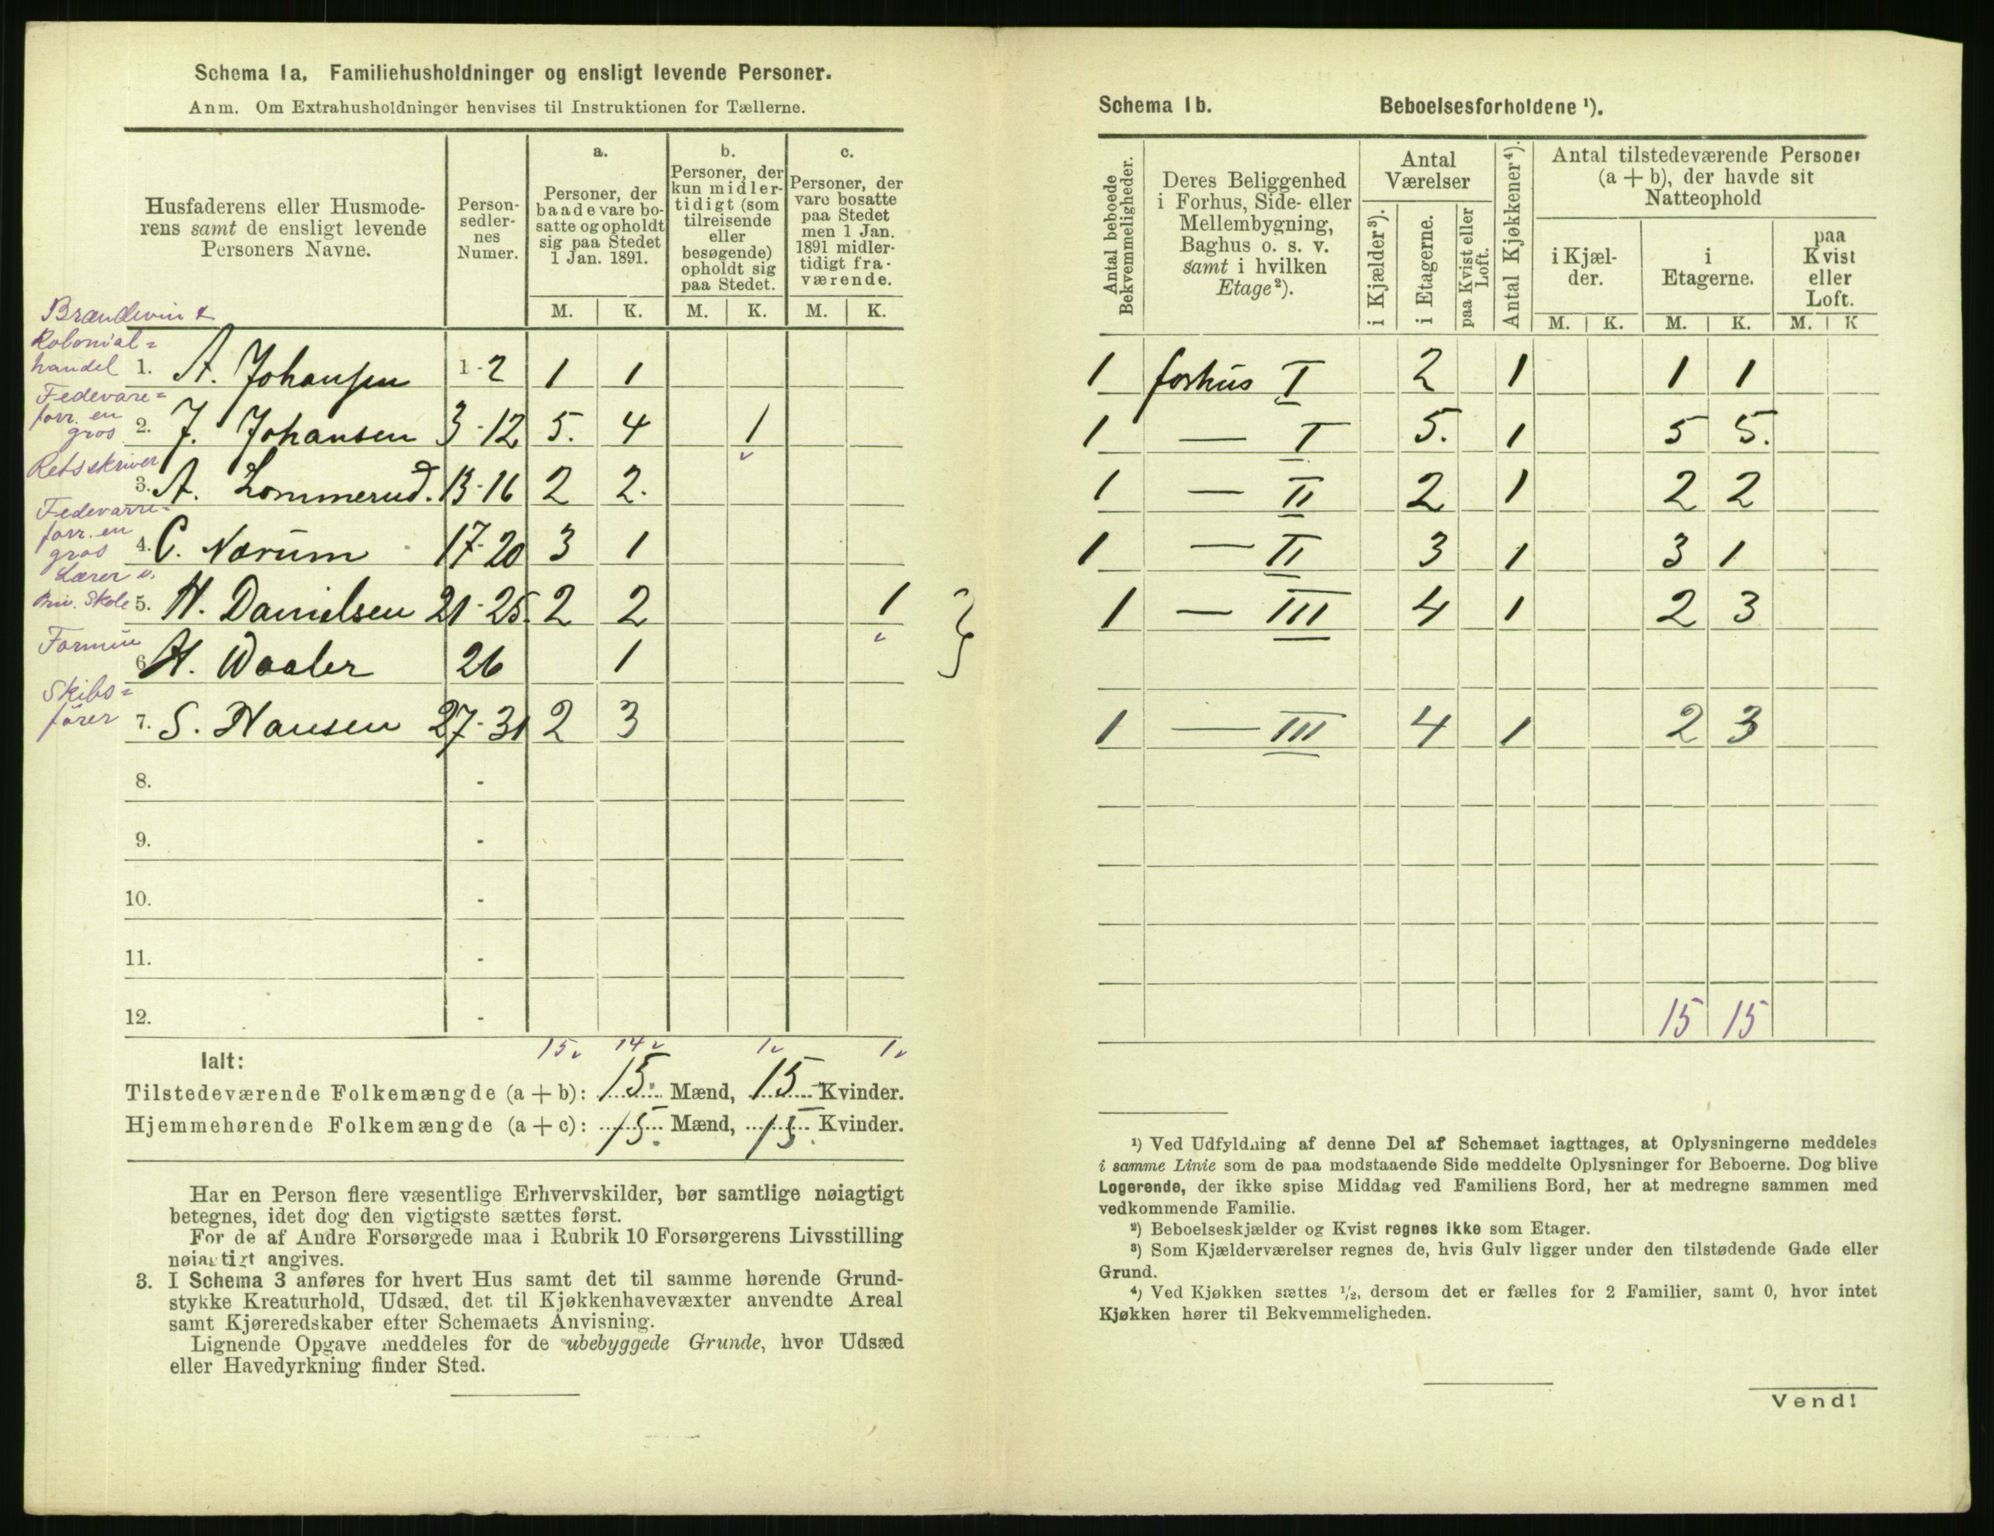 Schema 1a, Familiehusholdninger og ensligt levende Personer.
Anm. Om Extrahusholdninger henvises til Instruktionen for Tællerne.
Husfaderens eller Husmoderens samt de ensligt levende Personers Navne.
Person-sedlernes Numer.
a.
Personer, der baade vare bosatte og opholdt sig paa Stedet 1 Jan. 1891.
b.
Personer, der kun midlertidigt (som tilreisende eller besøgende) opholdt sig paa Stedet.
c.
Personer, der vare bosatte paa Stedet men 1 Jan. 1891 midlertidigt fraværende.
M. K. M. K. M. K.
Brændevin &
Kolonial=
handel 1. A. Johansen 1-2 1 1
Fedevare=
forr. en
gros 2. J. Johansen 3-12 5. 4 1
Retsskriver
3. A. Lommerud. 13-16 2 2.
Fedevarre=
forr. en
gros 4. C. Nærum 17-20 3 1
Lærer v.
Priv. Skole 5. H. Danielsen 21-25. 2 2 1
Formue
6. H. Waaler 26 1
Skibs=
fører 7. S. Hansen 27-31 2 3
8. -
9. -
10. -
11. -
12. -
15 14 1 1
Ialt:
Tilstedeværende Folkemængde (a + b): 15. Mænd, 15 Kvinder.
Hjemmehørende Folkemængde (a + c): 15. Mænd, 15. Kvinder.
Har en Person flere væsentlige Erhvervskilder, bør samtlige nøiagtigt
betegnes, idet dog den vigtigste sættes først.
For de af Andre Forsørgede maa i Rubrik 10 Forsørgerens Livsstilling
nøiagtigt angives.
3. I Schema 3 anføres for hvert Hus samt det til samme hørende Grund-
stykke Kreaturhold, Udsæd, det til Kjøkkenhavevæxter anvendte Areal
samt Kjøreredskaber efter Schemaets Anvisning.
Lignende Opgave meddeles for de ubebyggede Grunde, hvor Udsæd
eller Havedyrkning finder Sted.
Schema 1b. Beboelsesforholdene ¹).
Antal beboede Bekvemmeligheder.
Deres Beliggenhed i Forhus, Side- eller Mellembygning, Baghus o. s. v. samt i hvilken Etage²).
Antal Værelser
i Kjælder³).
i Etagerne.
paa Kvist eller Loft.
Antal Kjøkkener⁴).
Antal tilstedeværende Personer (a + b), der havde sit Natteophold
i Kjælder.
i Etagerne.
paa Kvist eller Loft.
M. K. M. K. M. K
1 forhus I 2 1 1 1
1 — I 5. 1 5 5.
1 — II 2 1 2 2
1 — II 3 1 3 1
1 — III 4 1 2 3
1 — III 4 1 2 3
15 15
¹) Ved Udfyldning af denne Del af Schemaet iagttages, at Oplysningerne meddeles
i samme Linie som de paa modstaaende Side meddelte Oplysninger for Beboerne. Dog blive
Logerende, der ikke spise Middag ved Familiens Bord, her at medregne sammen med
vedkommende Familie.
²) Beboelseskjælder og Kvist regnes ikke som Etager.
³) Som Kjælderværelser regnes de, hvis Gulv ligger under den tilstødende Gade eller
Grund.
⁴) Ved Kjøkken sættes ½, dersom det er fælles for 2 Familier, samt 0, hvor intet
Kjøkken hører til Bekvemmeligheden.
Vend!